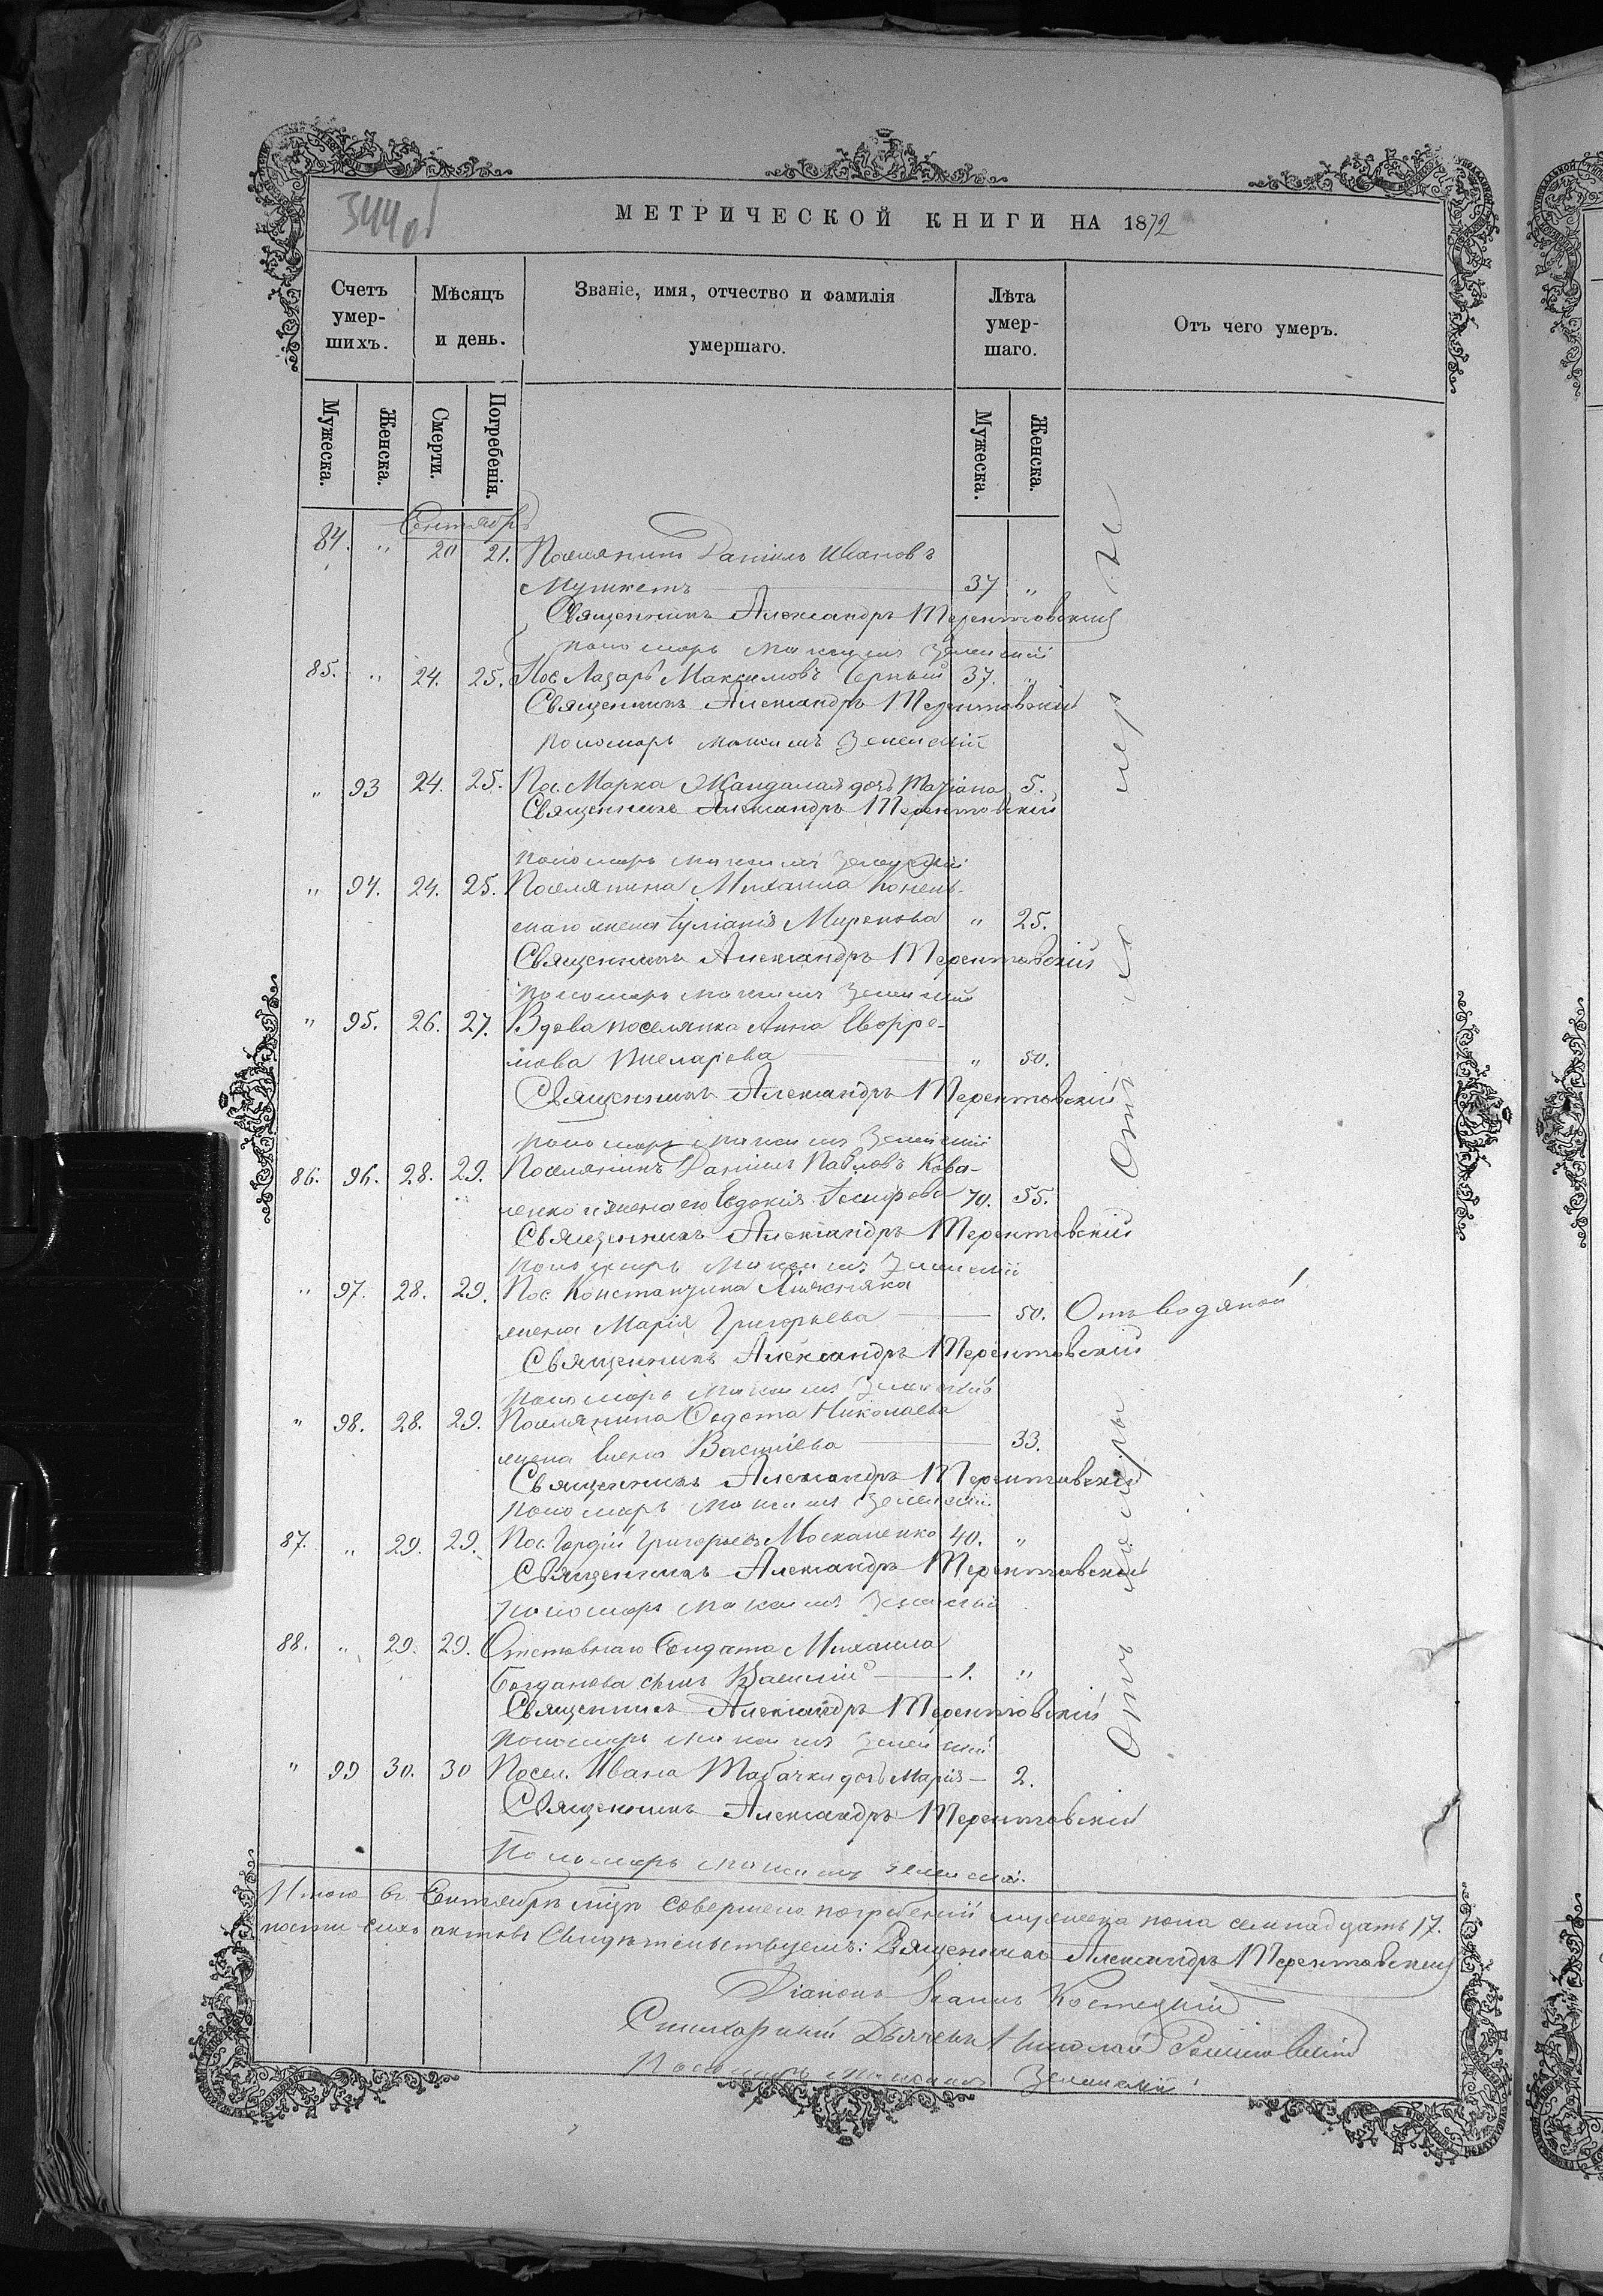 344 об
МЕТРИЧЕСКОЙ КНИГИ НА 1872
Счетъ умер-шихъ.
Мѣсяцъ и день.
Званіе, имя, отчество и фамилія умершаго.
Лѣта умер-шаго.
Отъ чего умеръ.
Мужеска. Женска. Смерти. Погребенія. Мужеска. Женска.
Сентябрь
84. " 20 21. Поселянинъ Даніилъ Ивановъ
Мушкетъ 37 "
Священникъ Александръ Терентовскій
Пономарь Максимъ Зеленскій
85. " 24. 25. Пос. Лазарь Максимовъ Черный 37. "
Священникъ Александръ Терентовскій
Пономарь Максимъ Зеленскій
" 93 24. 25. Пос. Марка Жандалая дочь Татіана 5.
Священникъ Александръ Терентовскій
Пономарь Максимъ Зеленскій
" 94. 24. 25. Поселянина Михаила
жена Миронова " 25.
Священникъ Александръ Терентовскій
Пономарь Максимъ Зеленскій
" 95. 26. 27. Вдова поселянка Анна Евфре-
мова " 50.
Священникъ Александръ Терентовскій
Пономарь Максимъ Зеленскій
86. 96. 28. 29. Поселянинъ Даніилъ Павловъ Кова-
ленко и жена его Евдокія 70. 55.
Священникъ Александръ Терентовскій
Пономарь Максимъ Зеленскій
" 97. 28. 29. Пос. Константина
жена Марія Григорьева 50. Отъ водяной
Священникъ Александръ Терентовскій
Пономарь Максимъ Зеленскій
" 98. 28. 29. Поселянина Федота Николаева
жена Елена Василіева 33.
Священникъ Александръ Терентовскій
Пономарь Максимъ Зеленскій
87. " 29. 29. Пос. Гордій Григорьевъ Москаленко 40. "
Священникъ Александръ Терентовскій
Пономарь Максимъ Зеленскій
88. " 29. 29. Отставнаго Солдата Михаила
Богданова сынъ Василій 1. "
Священникъ Александръ Терентовскій
Пономарь Максимъ Зеленскій
" 99 30. 30 Посел. Ивана Табачки дочь Марія 2.
Священникъ Александръ Терентовскій
Пономарь Максимъ Зеленскій
Отъ холеры
Отъ
Итого въ Сентябрѣ м-цѣ совершено погребеній мужеска пола семнадцать 17.
ности сихъ актовъ Свидѣтельствуемъ: Священникъ Александръ Терентовскій
Діаконъ Іоаннъ Костецкій
Стихарный Дьячекъ Николай
Пономарь Максимъ Зеленскій